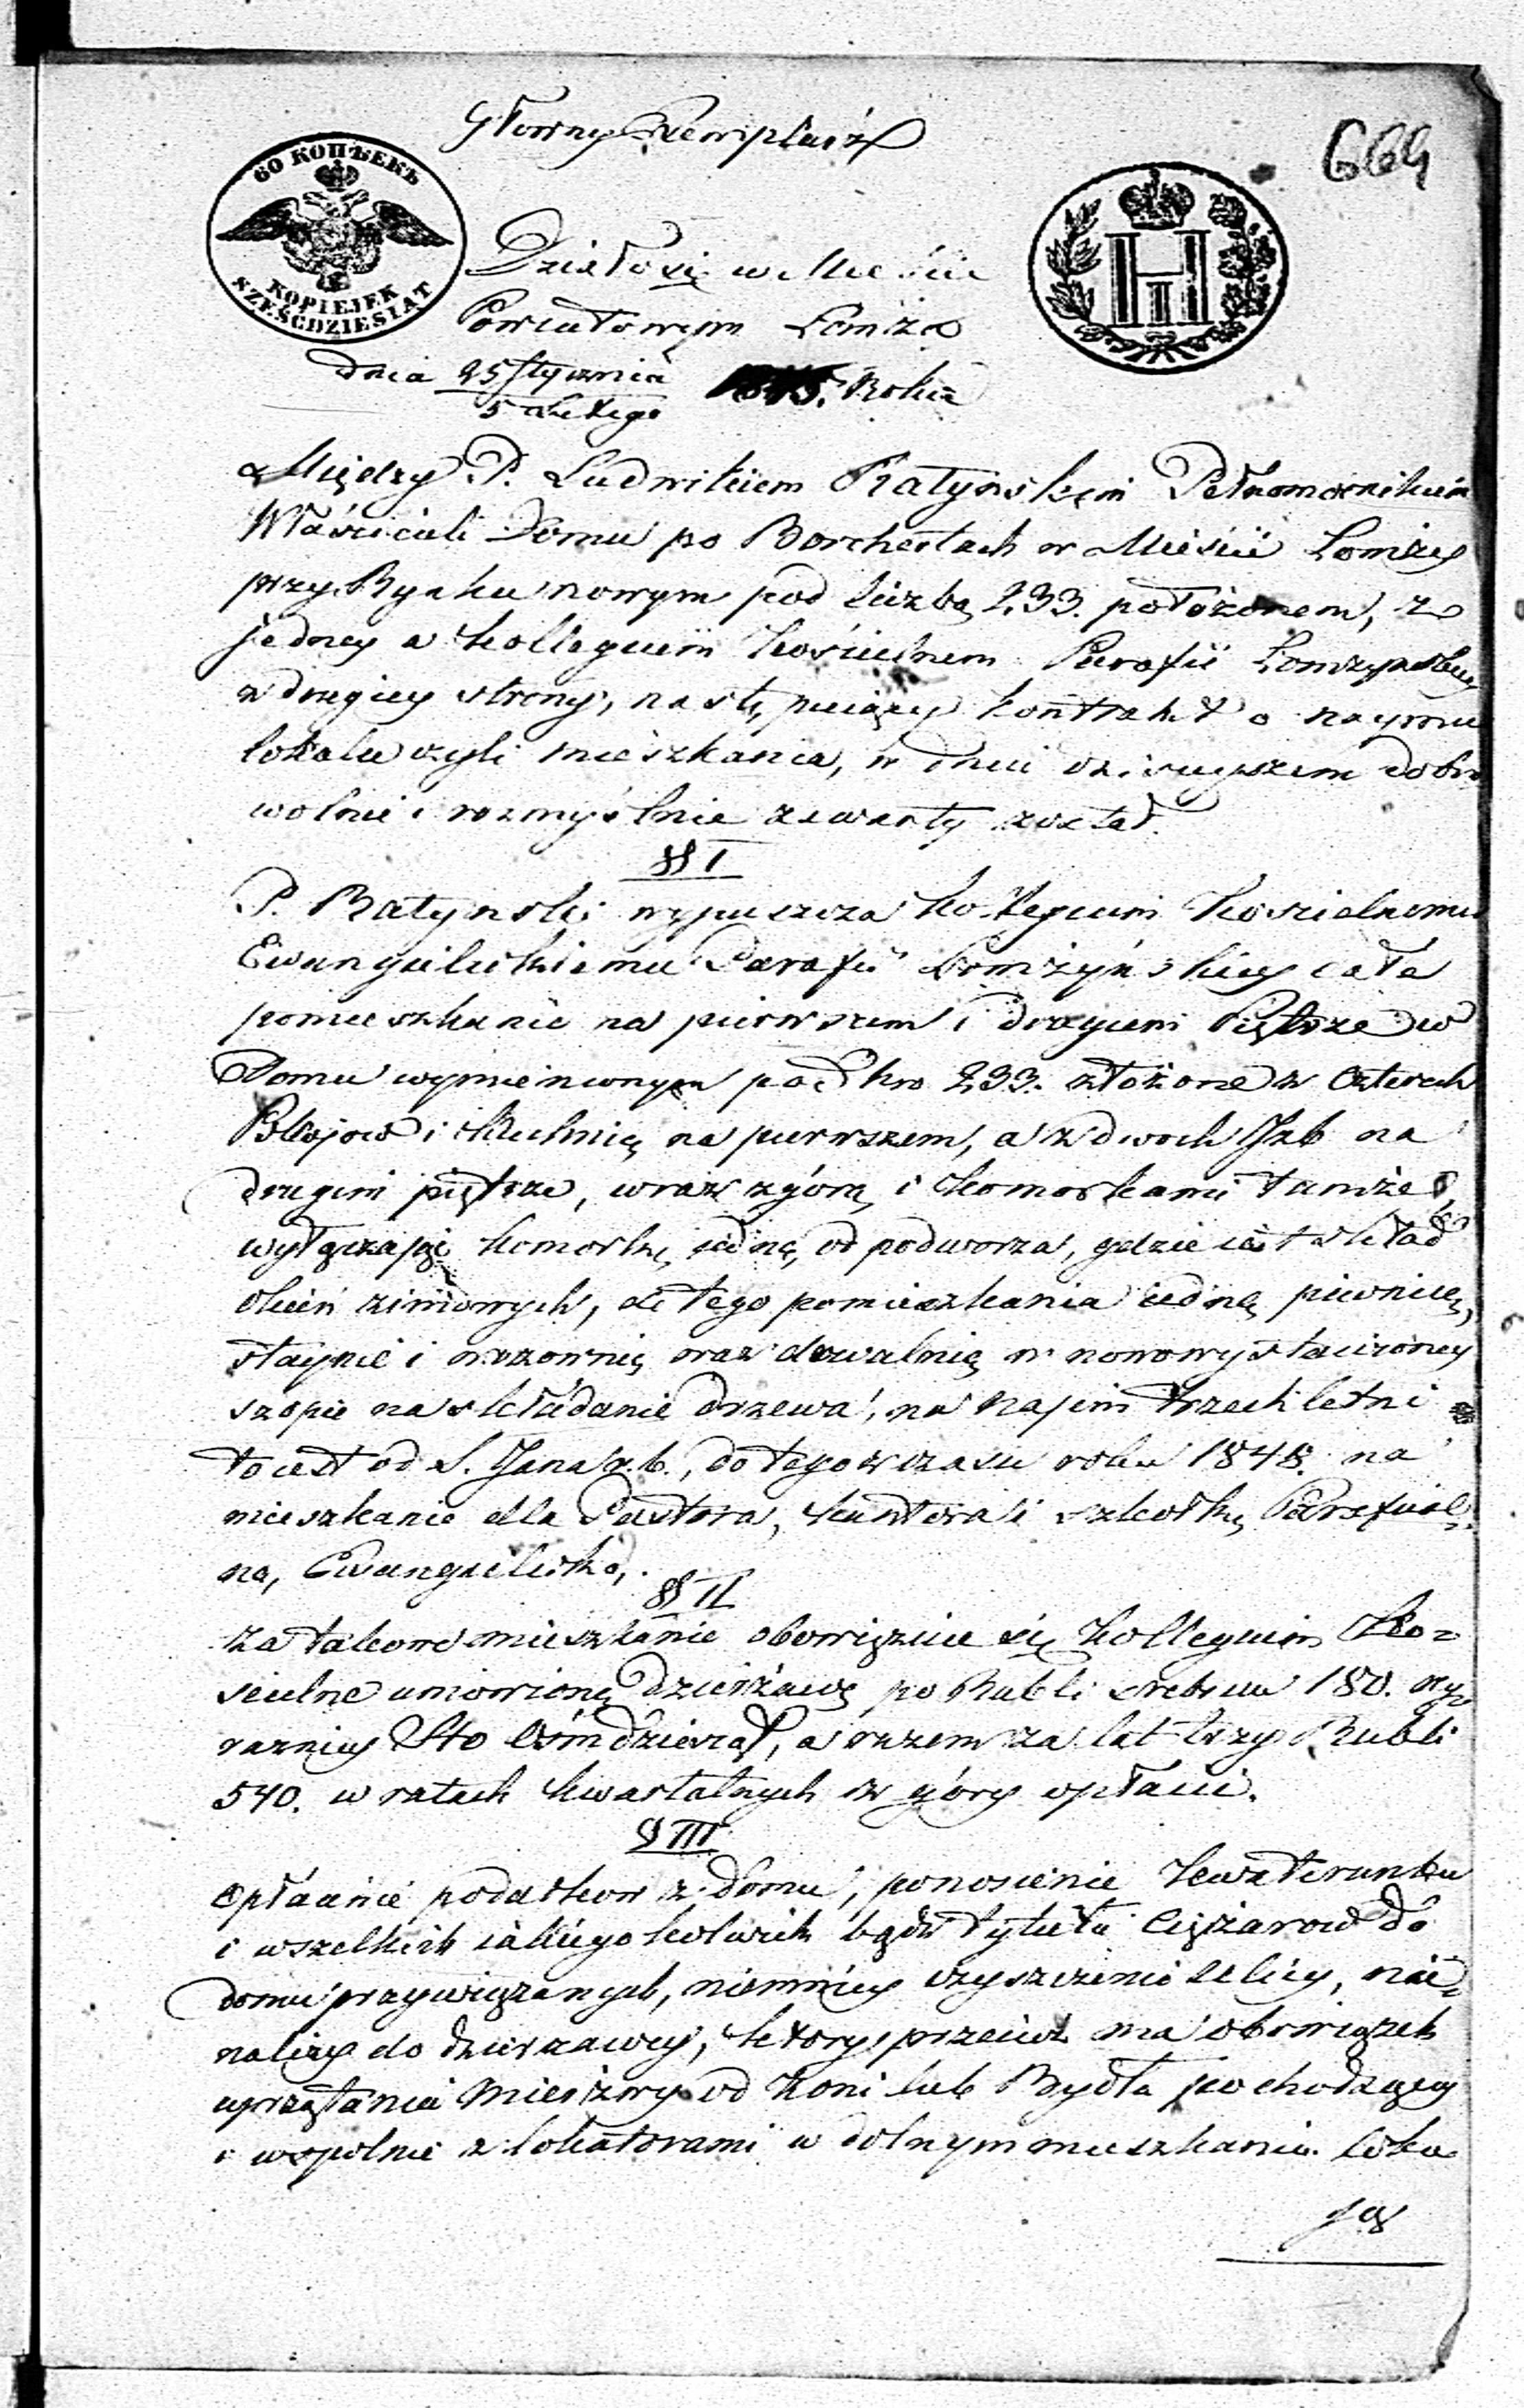 Główny Exemplarz
664
60 КОПѢЕКЪ
KOPIEJEK
SZEŚĆDZIESIĄT
H I
Działo się w Mieście
Powiatowym Łomża
dnia 25 Stycznia 1845. Roku
5 Lutego
Między P. Ludwikiem Ratyńskim Pełnomocnikiem
Właścicieli Domu po Borchertach w Mieście Łomży
przy Rynku nowym pod liczbą 233. położonem, z
jedney a Kollegium Kościelnem Parafii Łomżyńskiey
z drugiey strony, następuiący kontrakt o naymu
lokalu czyli mieszkania, w dniu dzisieyszem dobro
wolnie i rozmyślnie zawarty został.
§ I
P. Ratynski wypuszcza Kollegium Kościelnemu
Ewangielickiemu Parafii Łomżyńskiey całe
pomieszkanie na pierwszem i drugiem Piętrze w
Domu wymienionym pod Nro 233. złożone z czterech
Pokojow i Kuchnią na pierwszem, a z dwoch Izb na
drugim piętrze, wraz z górą i komorkami tamże,
wyłączając komorkę jedną od podworza, gdzie iest skład
okien zimowych, do tego pomieszkania iedną piwnicę,
staynie i wozownią oraz drwalnią w nowowystawioney
szopie na składanie drzewa, na najem trzechletni
to iest od S. Jana r. b., do tegoż czasu roku 1848. na
mieszkanie dla Pastora, Kantora i szkołkę Parafial-
ną, Ewangielicką.
§ II
Za takowe mieszkanie obowiązuie się Kollegium Ko=
ścielne umowioną dzierżawę po Rubli srebrem 180. wy=
raźniey Sto Ośmdziesiąt, a razem za lat trzy Rubli
540. w ratach kwartalnych z góry opłacić.
§ III
Opłacanie podatkow z domu, ponoszenie kwaterunku
i wszelkich iakiegokolwiek bądź tytułu Ciężarow do
domu przywiązanych, niemniey czyszczenie ulicy, nie=
należy do dzierzawcy, ktory przecież ma obowiązek
uprzątania mierzwy od Koni lub Bydła pochodzącey
i wspolnie z lokatorami w dolnym mieszkaniu loku